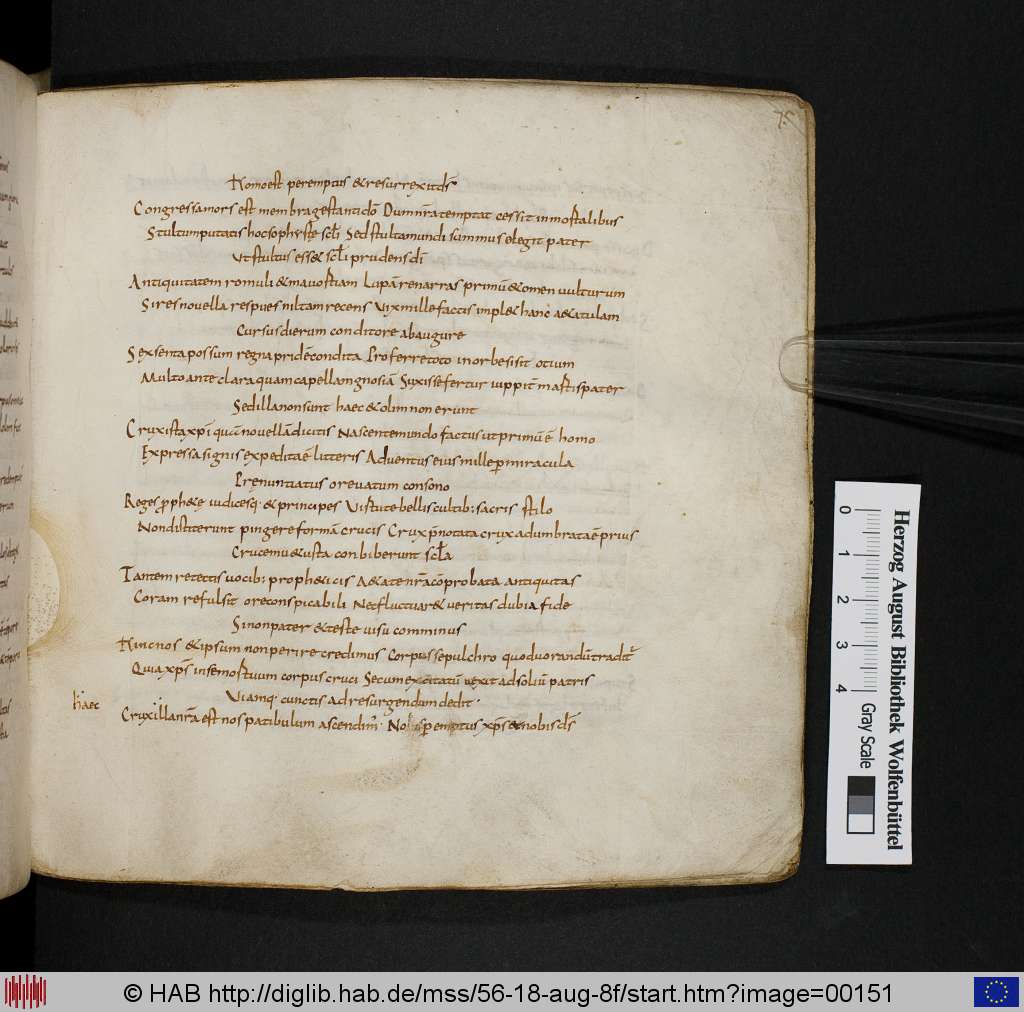 75
Homo est peremptus & resurrexit ds̄
Congressa mors est membra gestanti dō Dum nr̄a temptat cessit inmortalibus
Stultum putatis hoc sophystę scl̄i Sed stulta mundi summus elegit pater
Ut stultus ess& scl̄i prudens dī
Antiquitatem romuli & mavortiam Lupā renarras primū & omen vulturum
Si res novella respues nil tam recens Vix mille factis impl& hanc a&atulam
Cursus dierum conditore ab augure
Sexsenta possum regna pridē condita Proferre toto in orbe si sit otium
Multo ante clara quam capellam gnosiā Suxisse fertur iuppit̄ martis pater
Sed illa non sunt haec & olim non erunt
Crux ista xp̄i quā novellā dicitis Nascente mundo factus ut primū ē homo
Expressa signis expedita ē litteris Adventus eius mille p miracula
Prenuntiatus ore vatum consono
Reges prophetę iudicesq: & principes Virtute bellis cultib: sacris stilo
Non distiterunt pingere formā crucis Crux p̄notata crux adumbrata ē prius
Crucem v&usta conbiberunt scl̄a
Tantem retectis vocib: proph&icis A&ate nr̄a cōprobata antiquitas
Coram refulsit ore conspicabili Ne fluctuar& veritas dubia fide
Si non pater& teste visu comminus
Hinc nos & ipsum non perire credimus Corpus sepulchro quod vorandū tradit᷑
Quia xp̄s in se mortuum corpus cruci Secum excitatū vexit ad soliū patris
Viamq: cunctis ad resurgendum dedit·
haec
Crux illa nr̄a est nos patibulum ascendim᷒· Nobis peremptus xp̄s & nobis ds̄
0 1 2 3 4
Gray Scale
Herzog August Bibliothek Wolfenbüttel
© HAB http://diglib.hab.de/mss/56-18-aug-8f/start.htm?image=00151